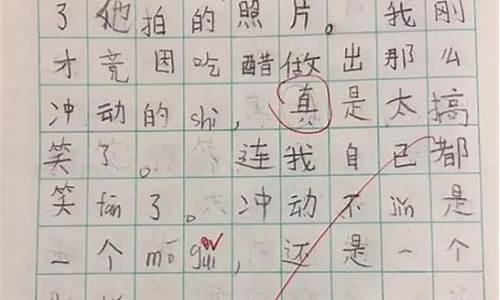 了他拍的照片。我刚
才竟因吃醋做出那么
冲动的shi,真是太搞
笑了。连我自己都
笑fān了。冲动不jǐn是
一个mō guǐ,还是一个